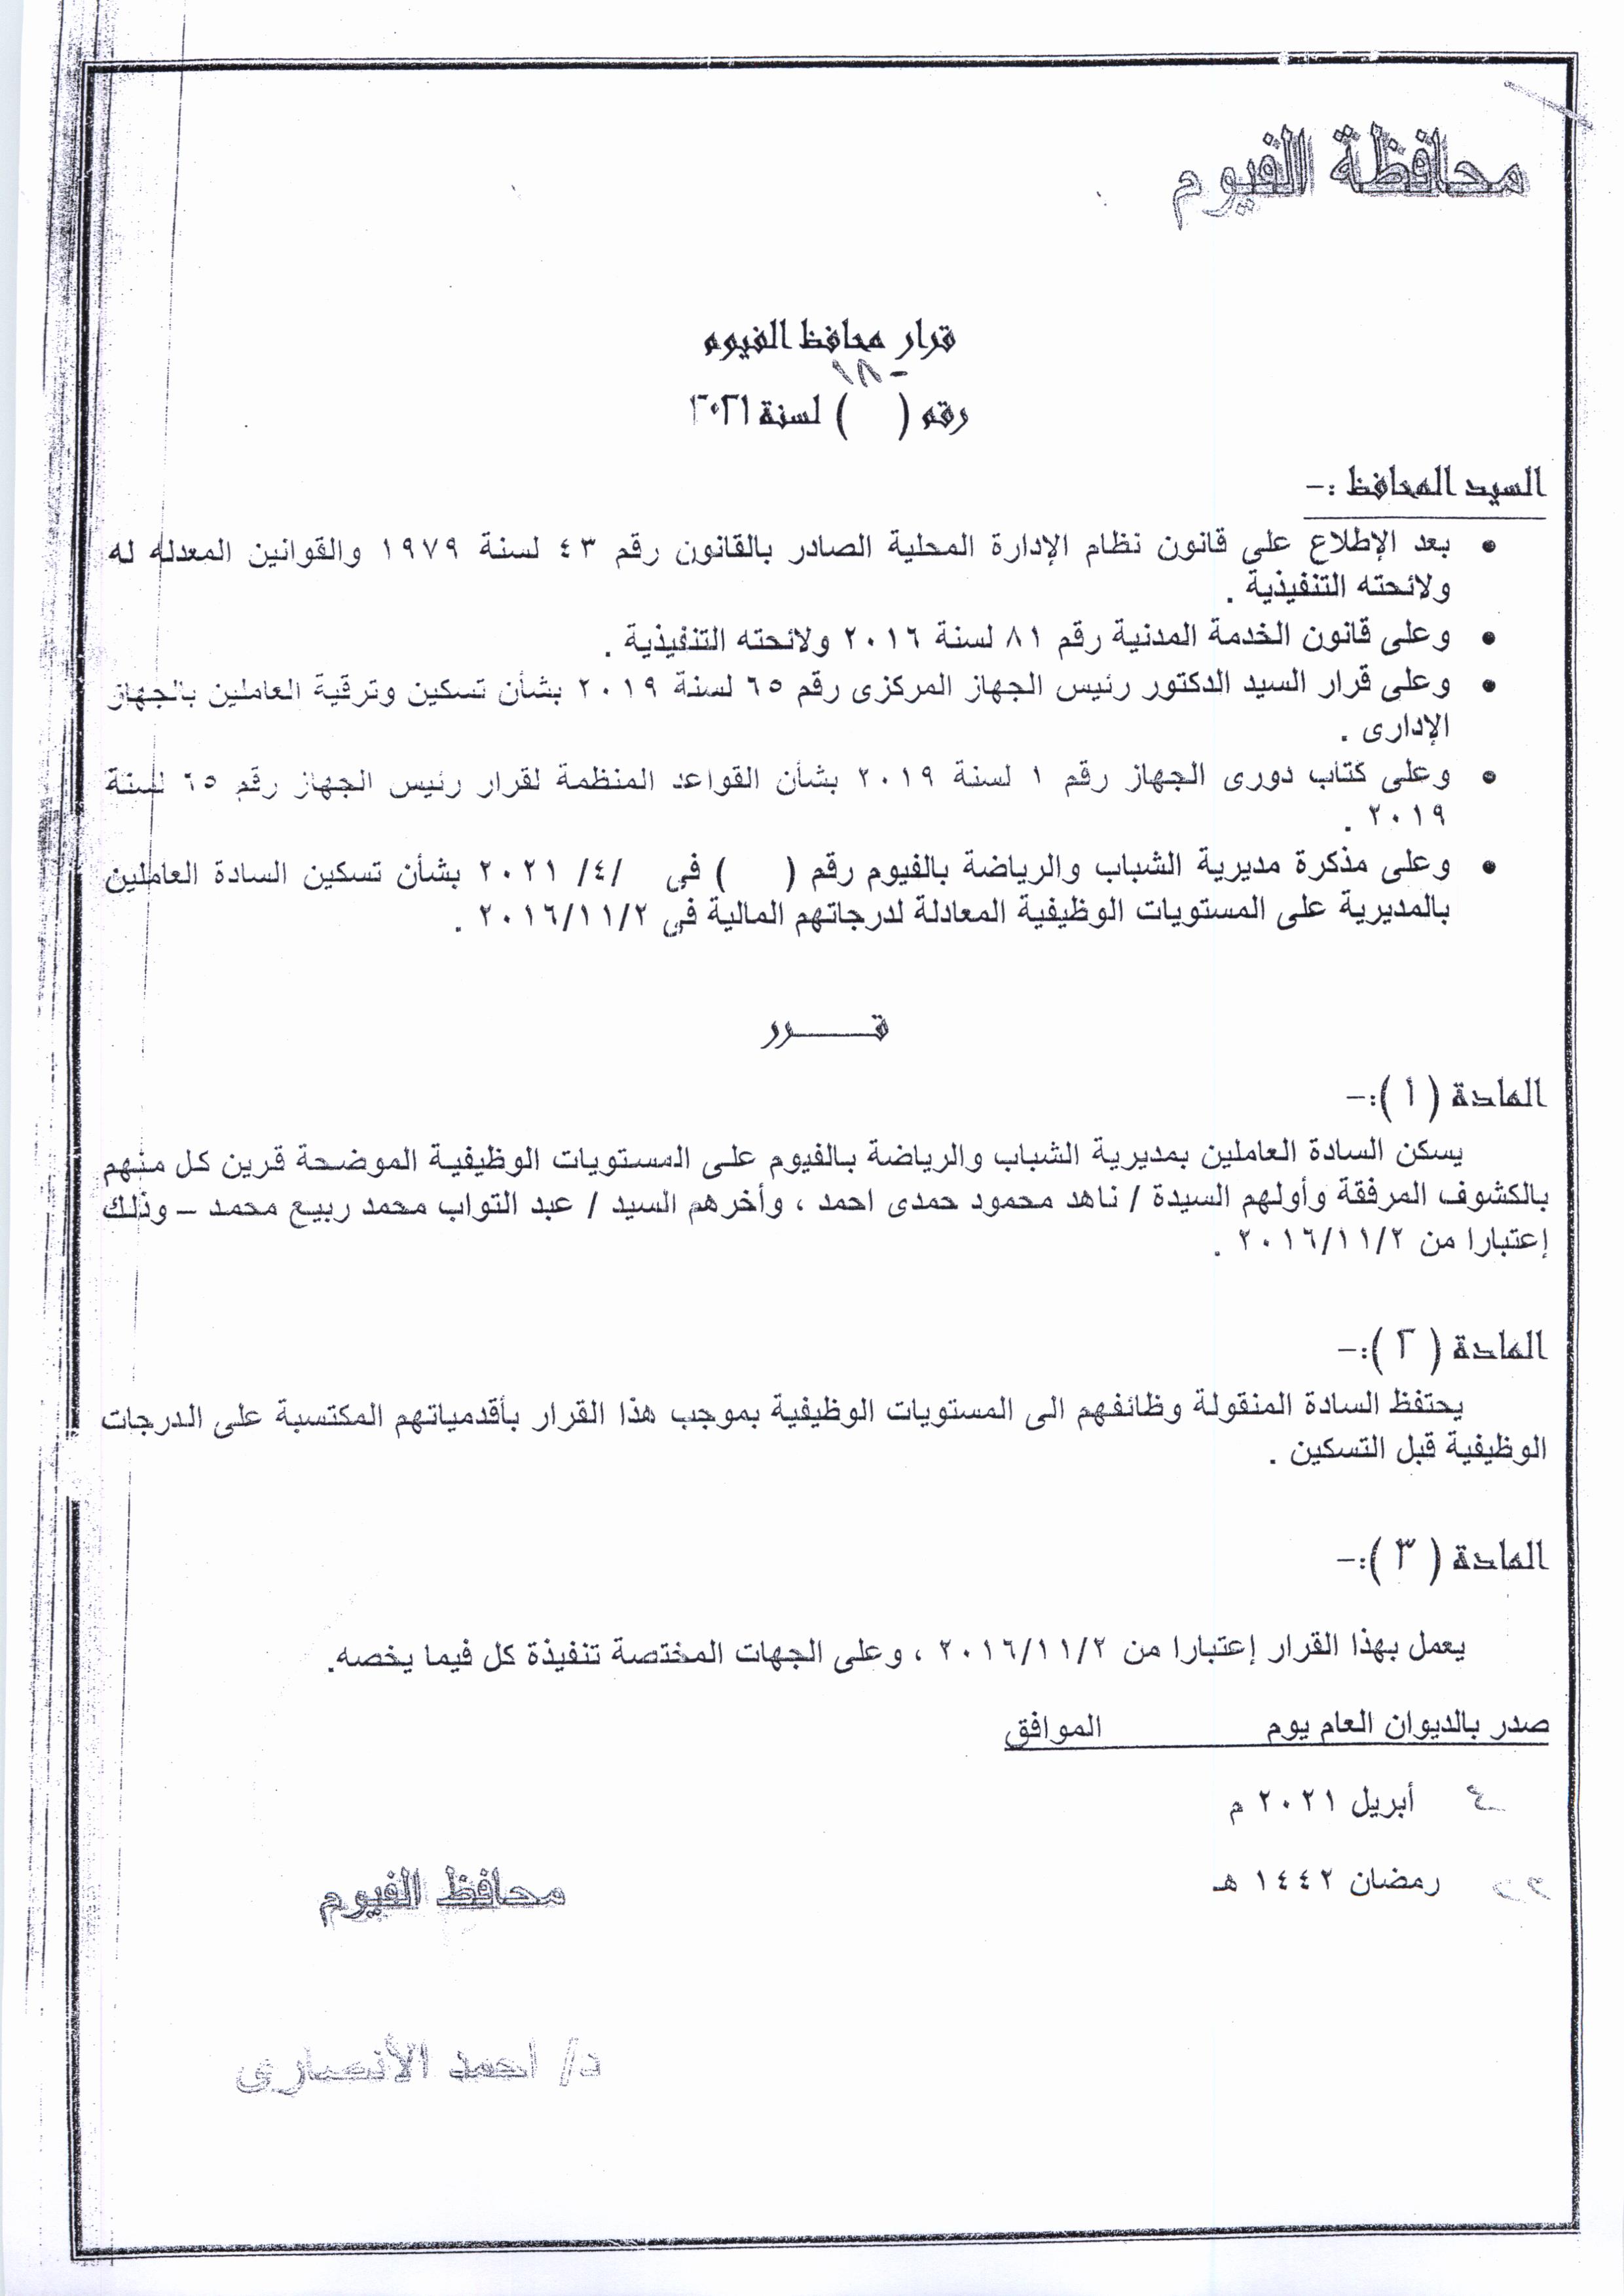 محافظة الفيوم
قرار محافظ الفيوم
رقم (    ) لسنة ٢٠٢١
السيد المحافظ :-
• بعد الإطلاع على قانون نظام الإدارة المحلية الصادر بالقانون رقم ٤٣ لسنة ١٩٧٩ والقوانين المعدله له
ولائحته التنفيذية .
• وعلى قانون الخدمة المدنية رقم ٨١ لسنة ٢٠١٦ ولائحته التنفيذية .
• وعلى قرار السيد الدكتور رئيس الجهاز المركزى رقم ٦٥ لسنة ٢٠١٩ بشأن تسكين وترقية العاملين بالجهاز
الإدارى .
• وعلى كتاب دورى الجهاز رقم ١ لسنة ٢٠١٩ بشأن القواعد المنظمة لقرار رئيس الجهاز رقم ٦٥ لسنة
٢٠١٩ .
• وعلى مذكرة مديرية الشباب والرياضة بالفيوم رقم (    ) فى   /٤/ ٢٠٢١ بشأن تسكين السادة العاملين
بالمديرية على المستويات الوظيفية المعادلة لدرجاتهم المالية فى ٢٠١٦/١١/٢ .
قــــرر
المادة ( ١ ):-
يسكن السادة العاملين بمديرية الشباب والرياضة بالفيوم على المستويات الوظيفية الموضحة قرين كل منهم
بالكشوف المرفقة وأولهم السيدة / ناهد محمود حمدى احمد ، وأخرهم السيد / عبد التواب محمد ربيع محمد – وذلك
إعتبارا من ٢٠١٦/١١/٢ .
المادة ( ٢ ):-
يحتفظ السادة المنقولة وظائفهم الى المستويات الوظيفية بموجب هذا القرار بأقدمياتهم المكتسبة على الدرجات
الوظيفية قبل التسكين .
المادة ( ٣ ):-
يعمل بهذا القرار إعتبارا من ٢٠١٦/١١/٢ ، وعلى الجهات المختصة تنفيذة كل فيما يخصه.
صدر بالديوان العام يوم          الموافق
أبريل ٢٠٢١ م
رمضان ١٤٤٢ هـ
محافظ الفيوم
د/ احمد الأنصارى